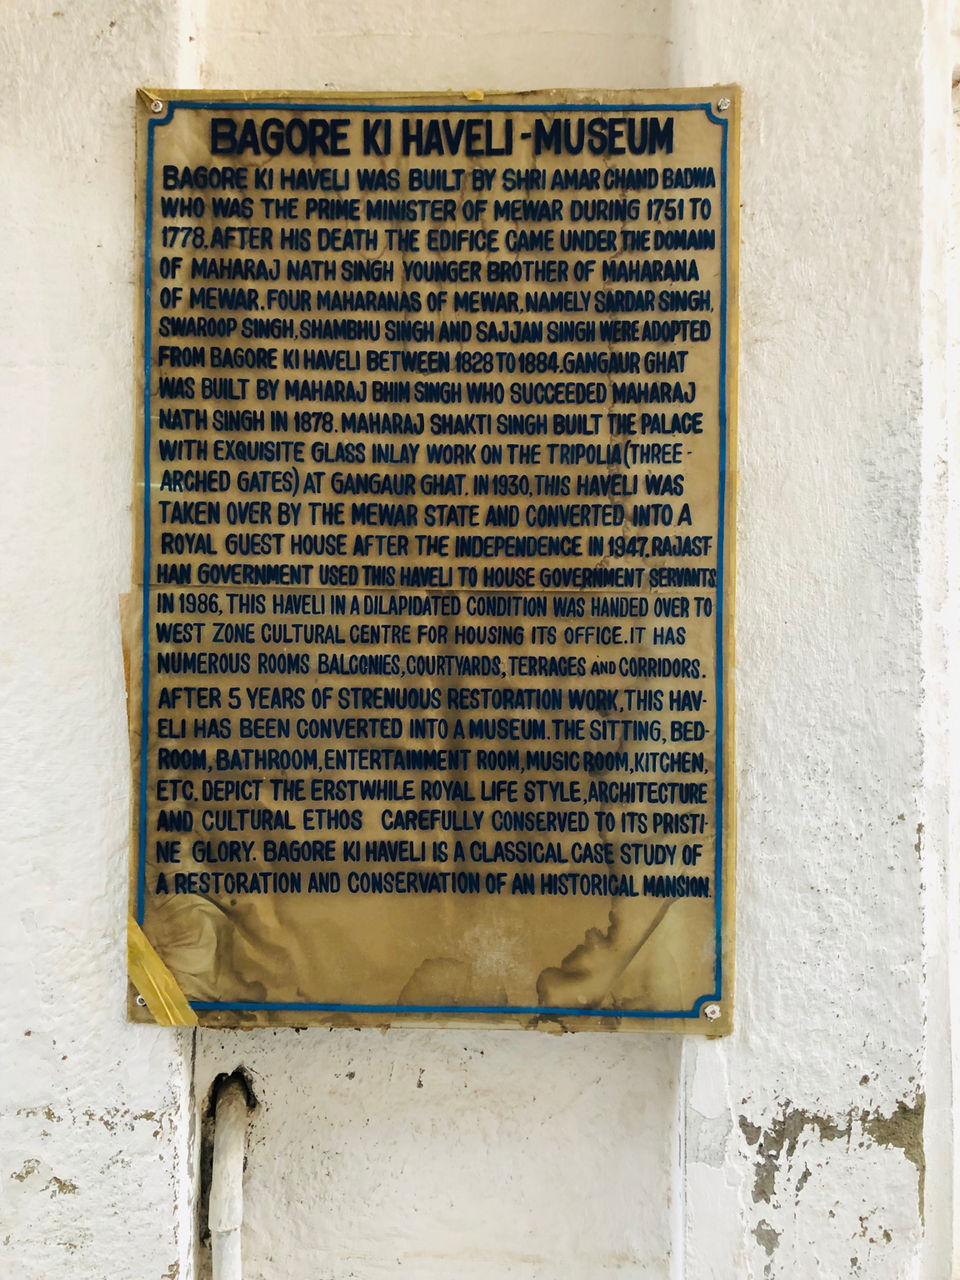 BAGORE KI HAVELI-MUSEUM
BAGORE KI HAVELI WAS BUILT BY SHRI AMAR CHAND BADWA
WHO WAS THE PRIME MINISTER OF MEWAR DURING 1751 TO
1778. AFTER HIS DEATH THE EDIFICE CAME UNDER THE DOMAIN
OF MAHARAJ NATH SINGH YOUNGER BROTHER OF MAHARANA
OF MEWAR. FOUR MAHARANAS OF MEWAR, NAMELY SARDAR SINGH,
SWAROOP SINGH, SHAMBHU SINGH AND SAJJAN SINGH WERE ADOPTED
FROM BAGORE KI HAVELI BETWEEN 1828 TO 1884. GANGAUR GHAT
WAS BUILT BY MAHARAJ BHIM SINGH WHO SUCCEEDED MAHARAJ
NATH SINGH IN 1878. MAHARAJ SHAKTI SINGH BUILT THE PALACE
WITH EXQUISITE GLASS INLAY WORK ON THE TRIPOLIA (THREE-
ARCHED GATES) AT GANGAUR GHAT. IN 1930, THIS HAVELI WAS
TAKEN OVER BY THE MEWAR STATE AND CONVERTED INTO A
ROYAL GUEST HOUSE AFTER THE INDEPENDENCE IN 1947. RAJAST-
HAN GOVERNMENT USED THIS HAVELI TO HOUSE GOVERNMENT SERVANTS
IN 1986, THIS HAVELI IN A DILAPIDATED CONDITION WAS HANDED OVER TO
WEST ZONE CULTURAL CENTRE FOR HOUSING ITS OFFICE. IT HAS
NUMEROUS ROOMS BALCONIES, COURTYARDS, TERRACES AND CORRIDORS.
AFTER 5 YEARS OF STRENUOUS RESTORATION WORK, THIS HAV-
ELI HAS BEEN CONVERTED INTO A MUSEUM. THE SITTING, BED-
ROOM, BATHROOM, ENTERTAINMENT ROOM, MUSIC ROOM, KITCHEN,
ETC. DEPICT THE ERSTWHILE ROYAL LIFE STYLE, ARCHITECTURE
AND CULTURAL ETHOS CAREFULLY CONSERVED TO ITS PRISTI-
NE GLORY. BAGORE KI HAVELI IS A CLASSICAL CASE STUDY OF
A RESTORATION AND CONSERVATION OF AN HISTORICAL MANSION.